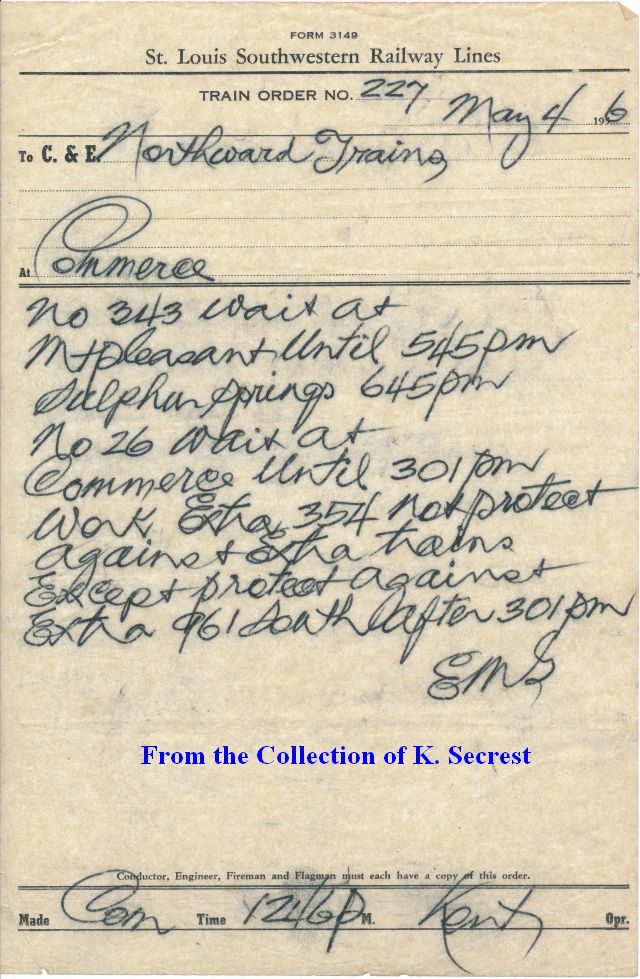 FORM 3149
St. Louis Southwestern Railway Lines
TRAIN ORDER NO. 227
May 4 1956
To C. & E. Northward Trains
At Commerce
No 343 wait at
Mtpleasant Until 545pm
Sulphur Springs 645pm
No 26 wait at
Commerce Until 301pm
Work Extra 354 not protect
against Extra trains
Except protect against
Extra 961 South after 301pm
EMS
From the Collection of K. Secrest
Conductor, Engineer, Fireman and Flagman must each have a copy of this order.
Made Com Time 1216P M. Kent Opr.